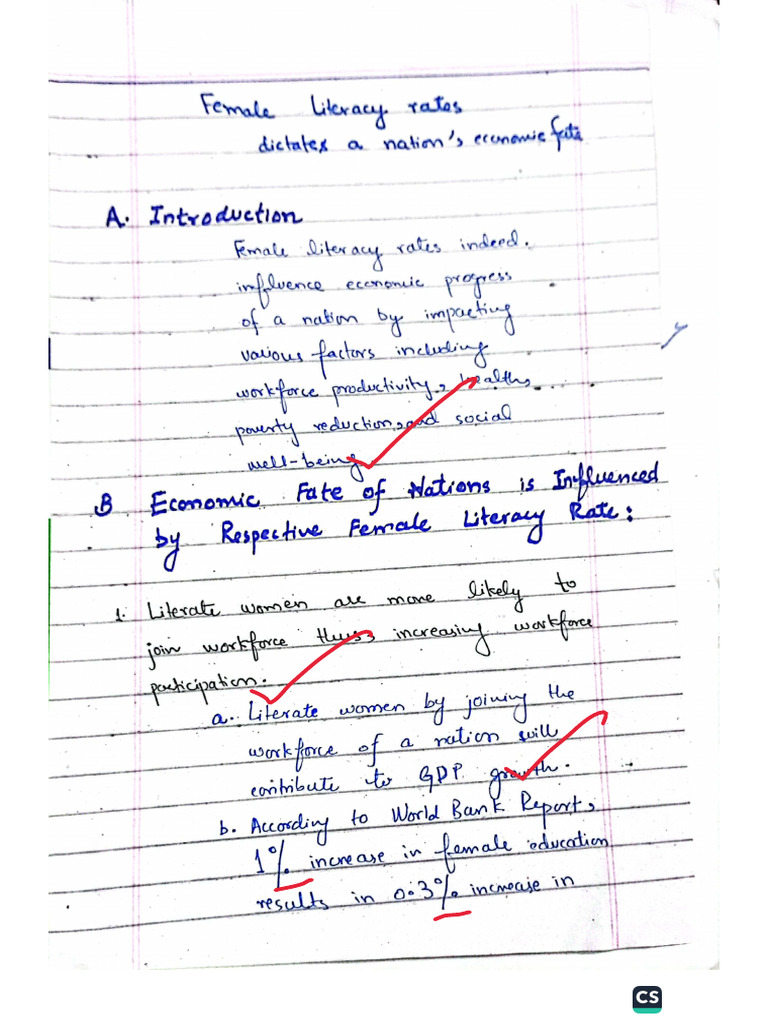 Female Literacy rates
dictates a nation's economic fate
A. Introduction
Female literacy rates indeed.
influence economic progress
of a nation by impacting
various factors including
workforce productivity, health,
poverty reduction, and social
well-being
B Economic Fate of Nations is Influenced
by Respective Female Literacy Rate:
1. Literate women are more likely to
join workforce thus increasing workforce
participation.
a. Literate women by joining the
workforce of a nation will
contribute to GDP growth.
b. According to World Bank Report,
1% increase in female education
results in 0.3% increase in
CS